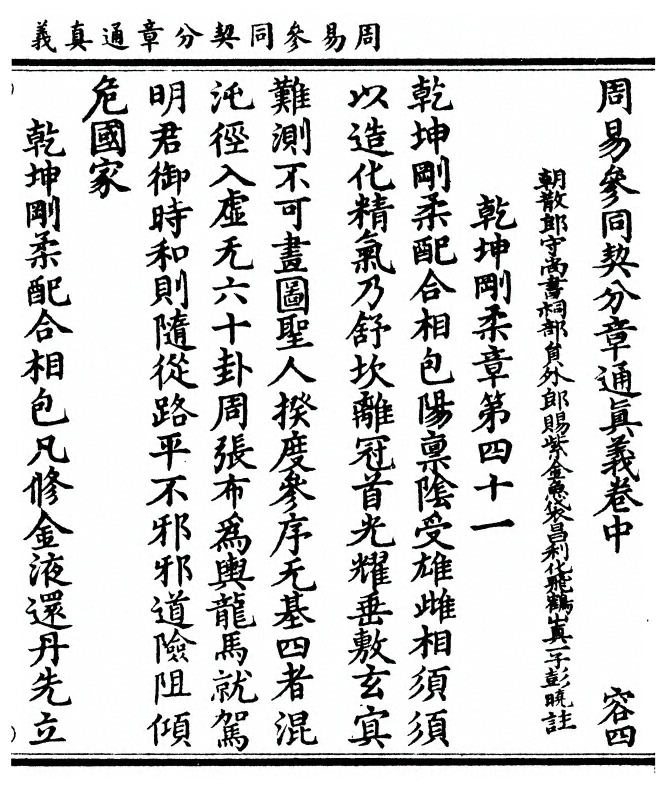 周易參同契分章通真義
周易參同契分章通眞義卷中 容四
朝散郎守尚書祠部貟外郎賜紫金魚袋昌利化飛鶴山真一子彭曉註
乾坤剛柔章第四十一
乾坤剛柔配合相包陽稟陰受雄雌相須須
以造化精氣乃舒坎離冠首光耀垂敷玄㝠
難測不可畫圖聖人揆度參序无基四者混
沌徑入虛无六十卦周張布為輿龍馬就駕
明君御時和則隨從路平不邪邪道險阻傾
危國家
乾坤剛柔配合相包凡修金液還丹先立